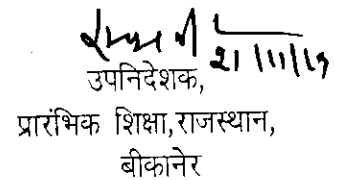 21/11/19
उपनिदेशक,
प्रारंभिक शिक्षा,राजस्थान,
बीकानेर